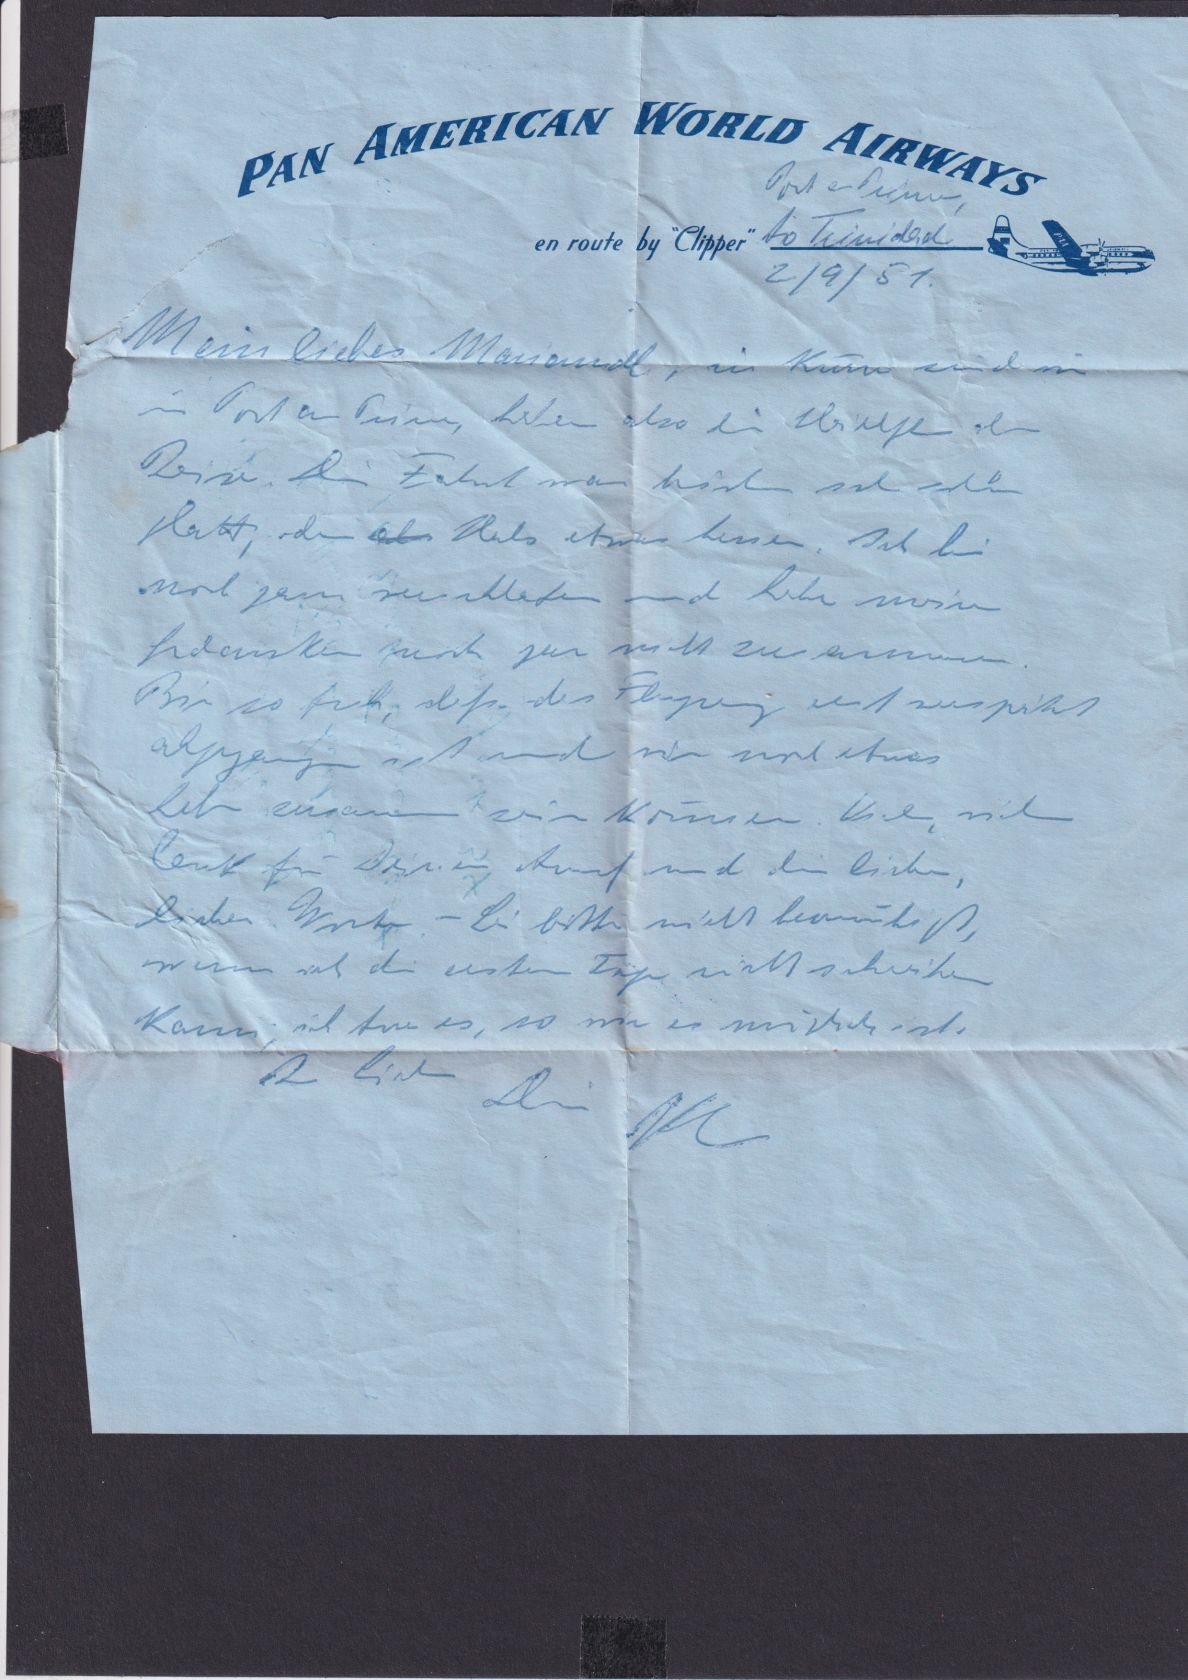 PAN AMERICAN WORLD AIRWAYS
Port a Prince,
en route by "Clipper" to Trinidad
2/9/51.
PAA
Mein liebes Mariandl, in Kürze sind wir
in Port au Prince, haben also die Hälfte der
Reise. Die Fahrt war bisher sehr schön
glatt, der Hals etwas besser. Ich bin
noch ganz verschlafen und habe meine
Gedanken noch gar nicht zusammen.
Bin so froh, daß das Flugzeug erst verspätet
abgegangen ist und wir noch etwas
zusammen sein können. Viel, viel
für Deinen Anruf und die lieben,
lieben Worte. – Sei bitte nicht beunruhigt,
wenn ich die ersten Tage nicht schreiben
kann, ich tue es, so wie es möglich ist.
In Liebe
Dein